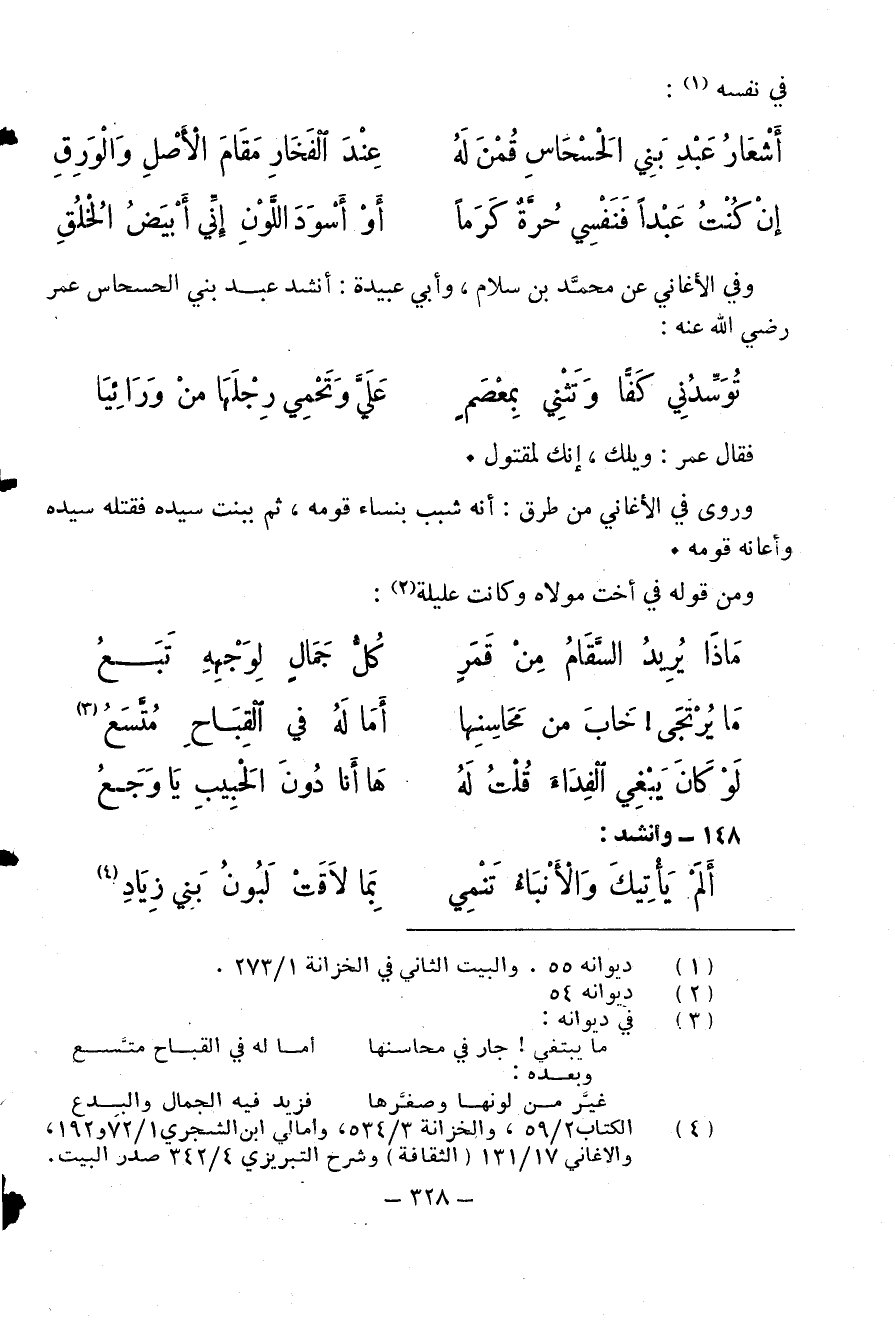 في نفسه (١) :
أَشْعَارُ عَبْدِ بَنِي الْحَسْحَاسِ قُمْنَ لَهُ عِنْدَ ٱلْفَخَارِ مَقَامَ الْأَصْلِ وَالْوَرِقِ
إِنْ كُنْتُ عَبْداً فَنَفْسِي حُرَّةٌ كَرَماً أَوْ أَسْوَدَ اللَّوْنِ إِنِّي أَبْيَضُ الْخُلُقِ
وفي الأغاني عن محمَّد بن سلام ، وأبي عبيدة : أنشد عبــد بني الحسحاس عمر
رضي الله عنه :
تُوَسِّدُنِي كَفًّا وَتَثْنِي بِمِعْصَمٍ عَلَيَّ وَتَحْمِي رِجْلَهَا مِنْ وَرَائِيَا
فقال عمر : ويلك ، إنك لمقتول .
وروى في الأغاني من طرق : أنه شبب بنساء قومه ، ثم ببنت سيده فقتله سيده
وأعانه قومه .
ومن قوله في أخت مولاه وكانت عليلة(٢) :
مَاذَا يُرِيدُ السَّقَامُ مِنْ قَمَرٍ كُلُّ جَمَالٍ لِوَجْهِهِ تَبَــعُ
مَا يُرْتَجَى ! خَابَ من مَحَاسِنِها أَمَا لَهُ في ٱلْقِبَاحِ مُتَّسَعُ(٣)
لَوْ كَانَ يَبْغِي ٱلْفِدَاءَ قُلْتُ لَهُ هَا أَنا دُونَ الْحَبِيبِ يَا وَجَعُ
١٤٨ ــ وأنشد :
أَلَمْ يَأْتِيكَ وَالْأَنْبَاءُ تَنْمِي بِمَا لَاقَتْ لَبُونُ بَنِي زِيَادِ(٤)
(١) ديوانه ٥٥ . والبيت الثاني في الخزانة ٢٧٣/١ .
(٢) ديوانه ٥٤
(٣) في ديوانه :
ما يبتغي ! جار في محاسنها أمــا له في القبــاح متَّســع
وبعــده :
غيَّر مــن لونهــا وصفَّرها فزيد فيه الجمال والبــدع
(٤) الكتاب ٥٩/٢ ، والخزانة ٥٣٤/٣، وأمالي ابن الشجري ٧٢/١و١٩٢،
والاغاني ١٣١/١٧ ( الثقافة ) وشرح التبريزي ٣٤٢/٤ صدر البيت.
– ٣٢٨ –